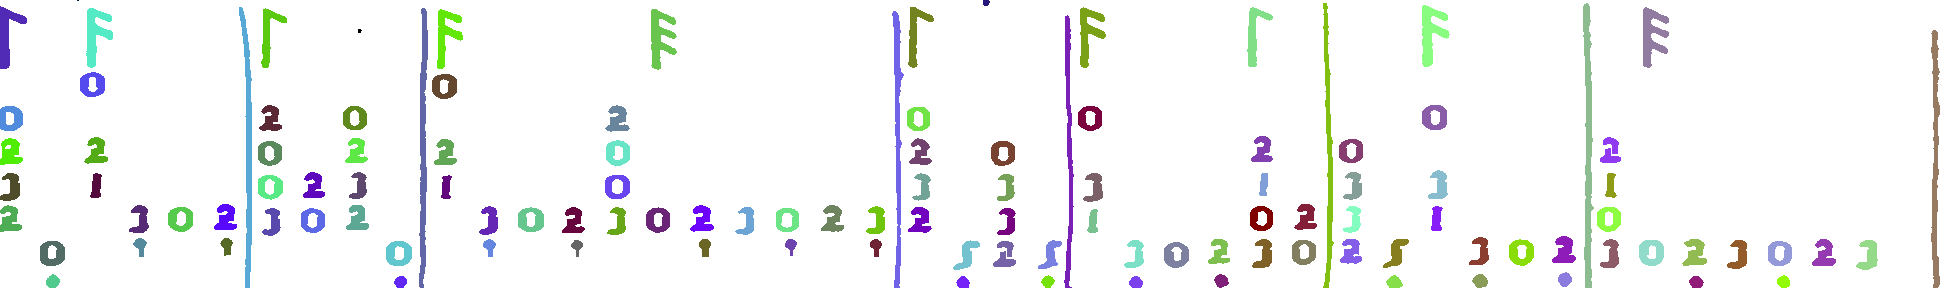 0 0
0 2 0 2 0 0 0
2 2 0 2 2 0 2 0 2 0 2
3 1 0 2 3 1 0 3 3 3 1 3 3 1
2 3 0 2 3 0 2 3 0 2 3 0 2 3 0 2 3 2 3 1 0 2 3 1 0
0 0 5 2 5 3 0 2 3 0 2 5 3 0 2 3 0 2 3 0 2 3